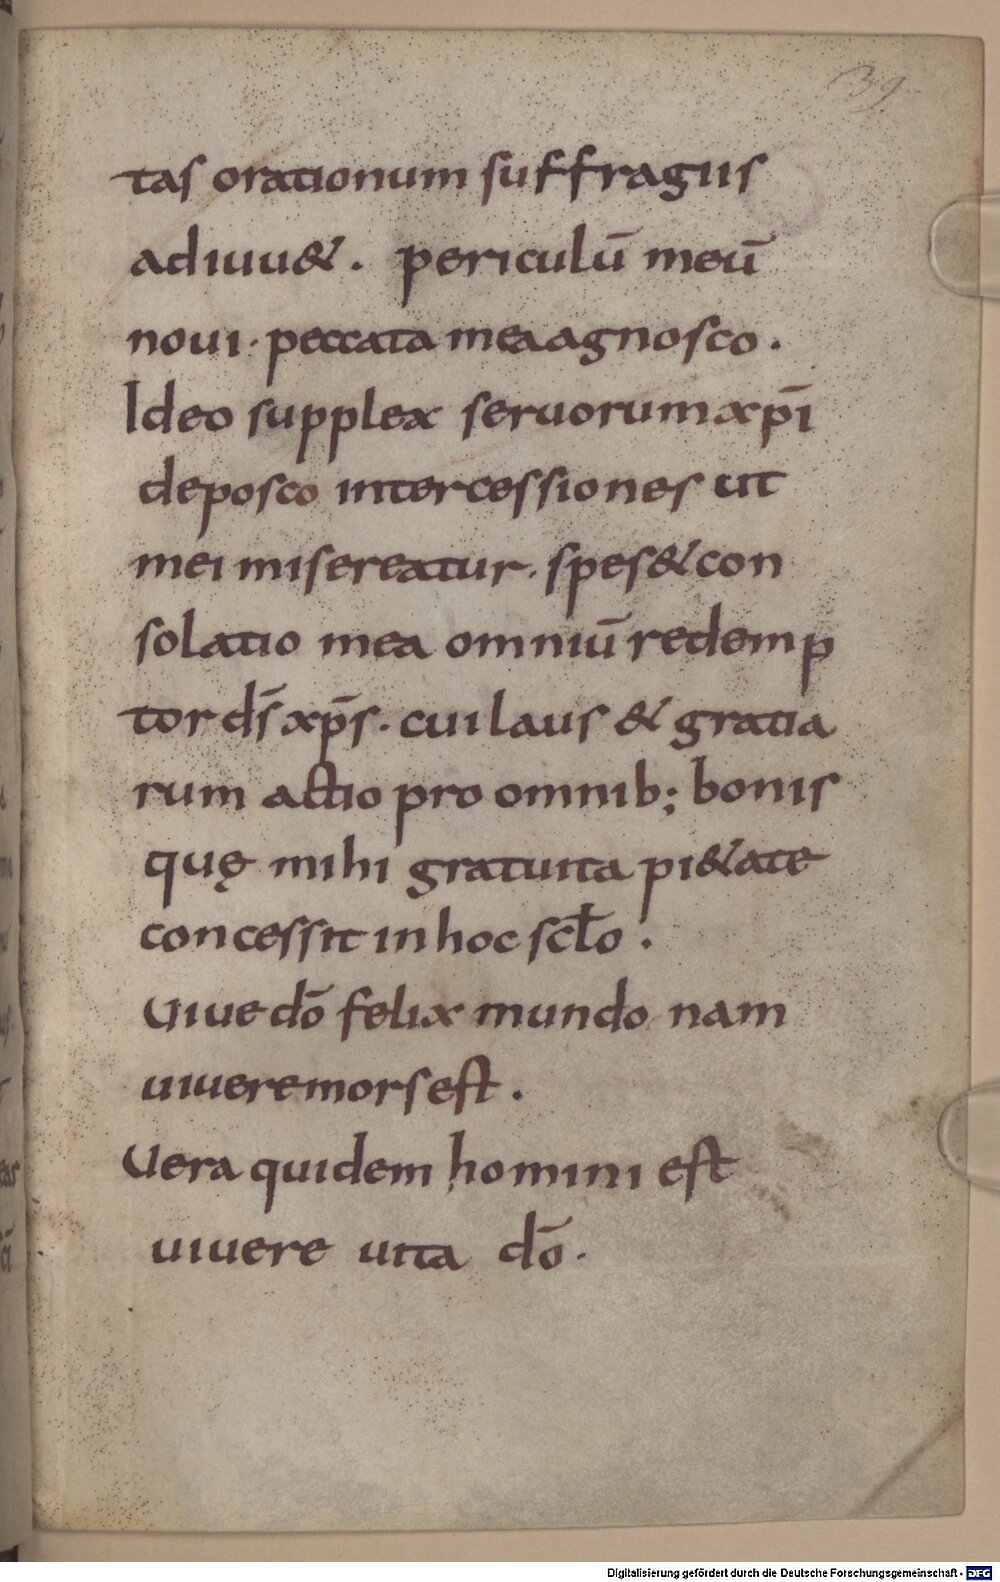 39
tas orationum suffragiis
adiuu&. periculū meū
noui. peccata mea agnosco.
Ideo supplex seruorum xp̄i
deposco intercessiones ut
mei misereatur. spes & con
solatio mea omniū redemp
tor ds̄ xp̄s. cui laus & gratia
rum actio pro omnib; bonis
quę mihi gratuita pi&ate
concessit in hoc scło.
Uiue dō felix mundo nam
uiuere mors est.
Uera quidem homini est
uiuere uita dō.
Digitalisierung gefördert durch die Deutsche Forschungsgemeinschaft - DFG